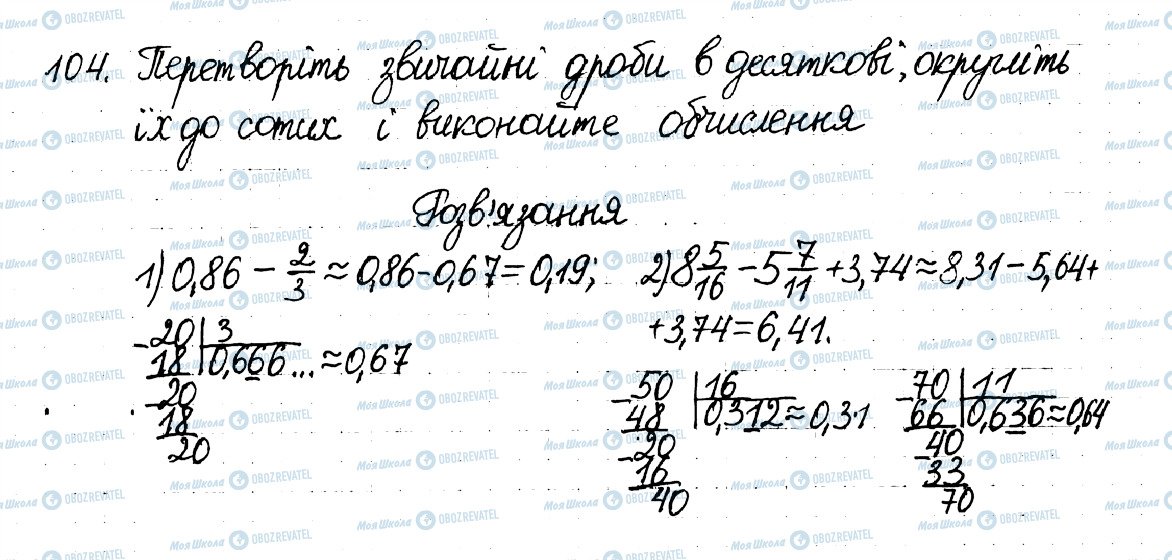 104. Перетворіть звичайні дроби в десяткові, округліть
їх до сотих і виконайте обчислення
Розв'язання
1) 0,86 - 2/3 ≈ 0,86-0,67=0,19;
2) 8 5/16 - 5 7/11 + 3,74 ≈ 8,31 - 5,64+
+3,74=6,41.
-20 | 3
18 | 0,666... ≈ 0,67
-20
18
20
-50 | 16
48 | 0,312 ≈ 0,31
-20
-16
40
-70 | 11
66 | 0,636 ≈ 0,64
-40
33
70
Моя Школа OBOZREVATEL